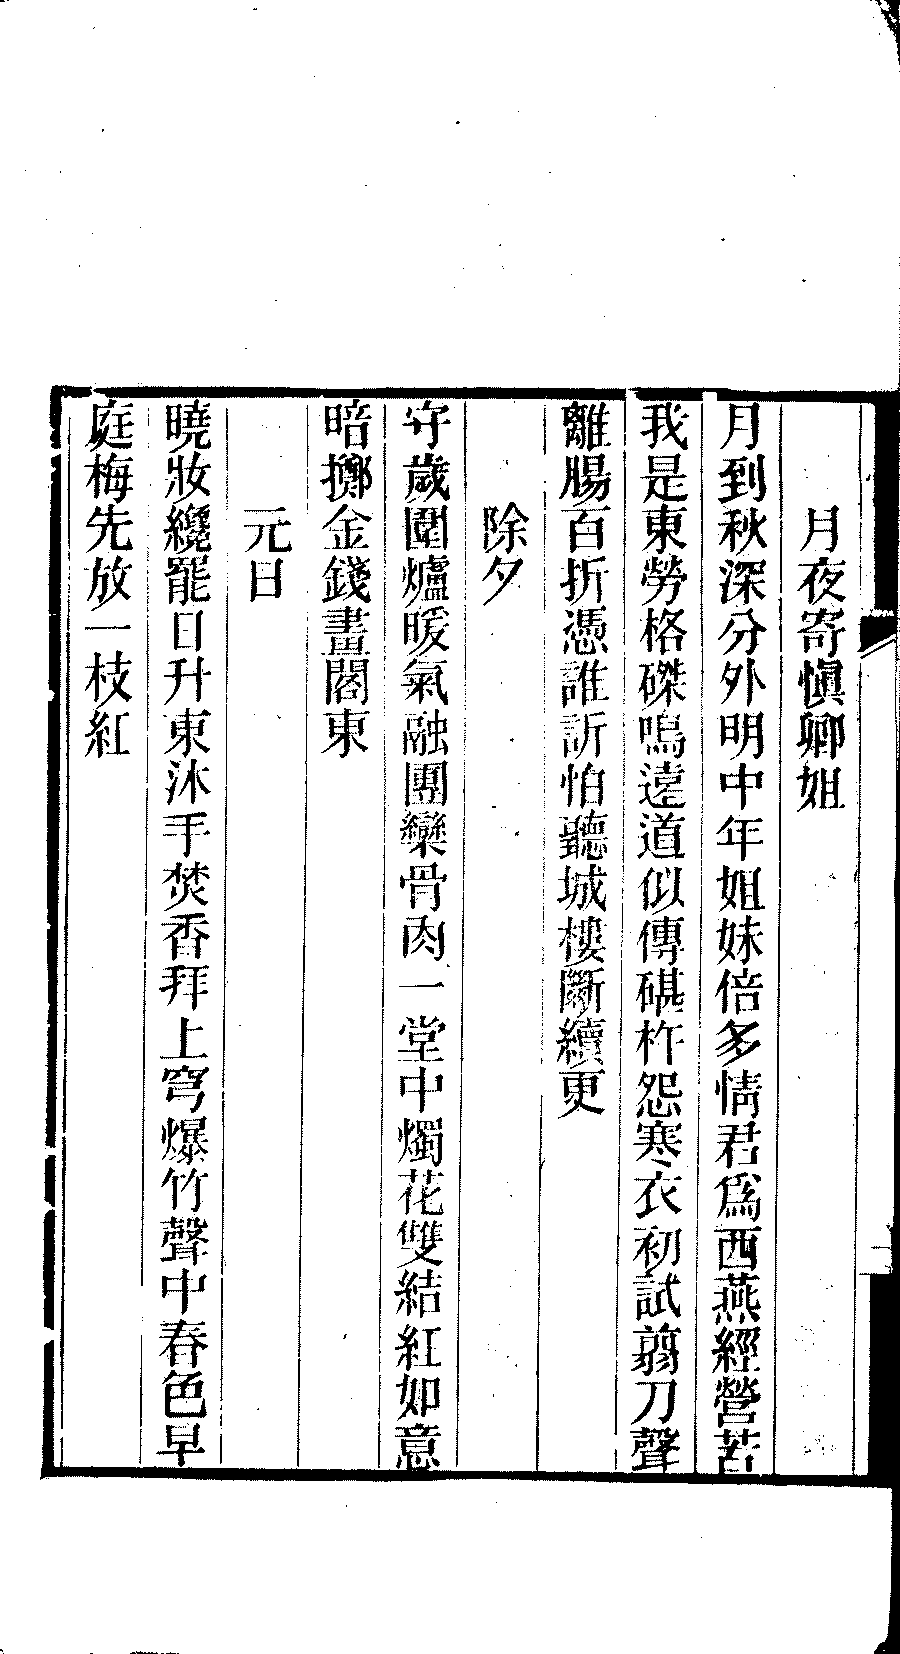 月夜寄愼卿姐
月到秋深分外明中年姐妹倍多情君爲西燕經營苦
我是東勞格磔鳴遠道似傳碪杵怨寒衣初試翦刀聲
離腸百折憑誰訴怕聽城樓斷續更
除夕
守歲圍爐暖氣融團欒骨肉一堂中燭花雙結紅如意
暗擲金錢畫閣東
元日
曉妝纔罷日升東沐手焚香拜上穹爆竹聲中春色早
庭梅先放一枝紅